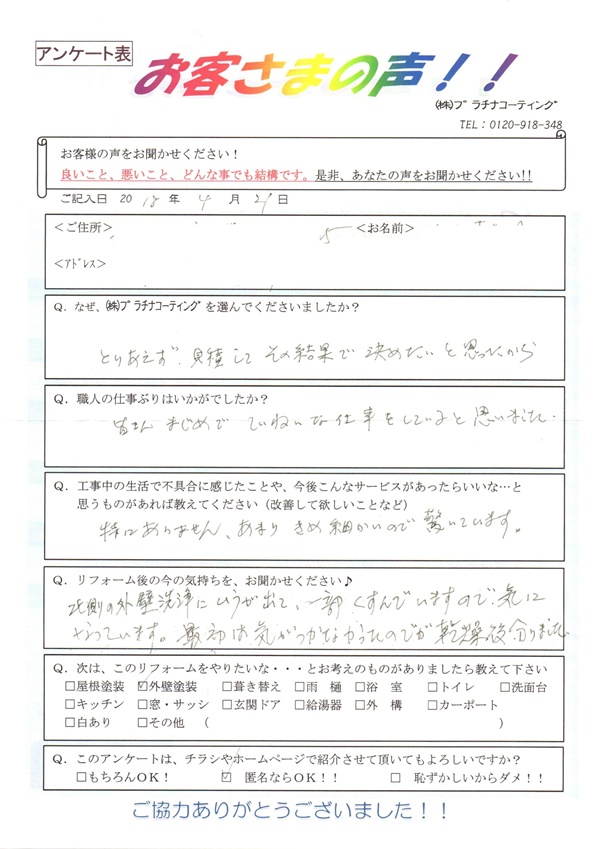 アンケート表
お客さまの声！！
㈱プラチナコーティング
TEL：0120-918-348
お客様の声をお聞かせください！
良いこと、悪いこと、どんな事でも結構です。是非、あなたの声をお聞かせください!!
ご記入日 2018年 4月21日
＜ご住所＞ 5 ＜お名前＞
＜アドレス＞
Q．なぜ、㈱プラチナコーティングを選んでくださいましたか？
とりあえず、見積して その結果で 決めたいと思ったから
Q．職人の仕事ぶりはいかがでしたか？
皆さん まじめで ていねいな仕事をしていると思いました。
Q．工事中の生活で不具合に感じたことや、今後こんなサービスがあったらいいな…と
思うものがあれば教えてください（改善して欲しいことなど）
特にありません、あまり きめ細かいので 驚いています。
Q．リフォーム後の今の気持ちを、お聞かせください♪
北側の外壁洗浄にムラが出て、一部くすんでいますので、気に
なっています。最初は気がつかなかったのですが乾燥後分りました
Q．次は、このリフォームをやりたいな・・・とお考えのものがありましたら教えて下さい
□屋根塗装 ☑外壁塗装 □葺き替え □雨 樋 □浴 室 □トイレ □洗面台
□キッチン □窓・サッシ □玄関ドア □給湯器 □外 構 □カーポート
□白あり □その他 （ ）
Q．このアンケートは、チラシやホームページで紹介させて頂いてもよろしいですか？
□もちろんOK！ ☑ 匿名ならOK！！ □ 恥ずかしいからダメ！！
ご協力ありがとうございました！！